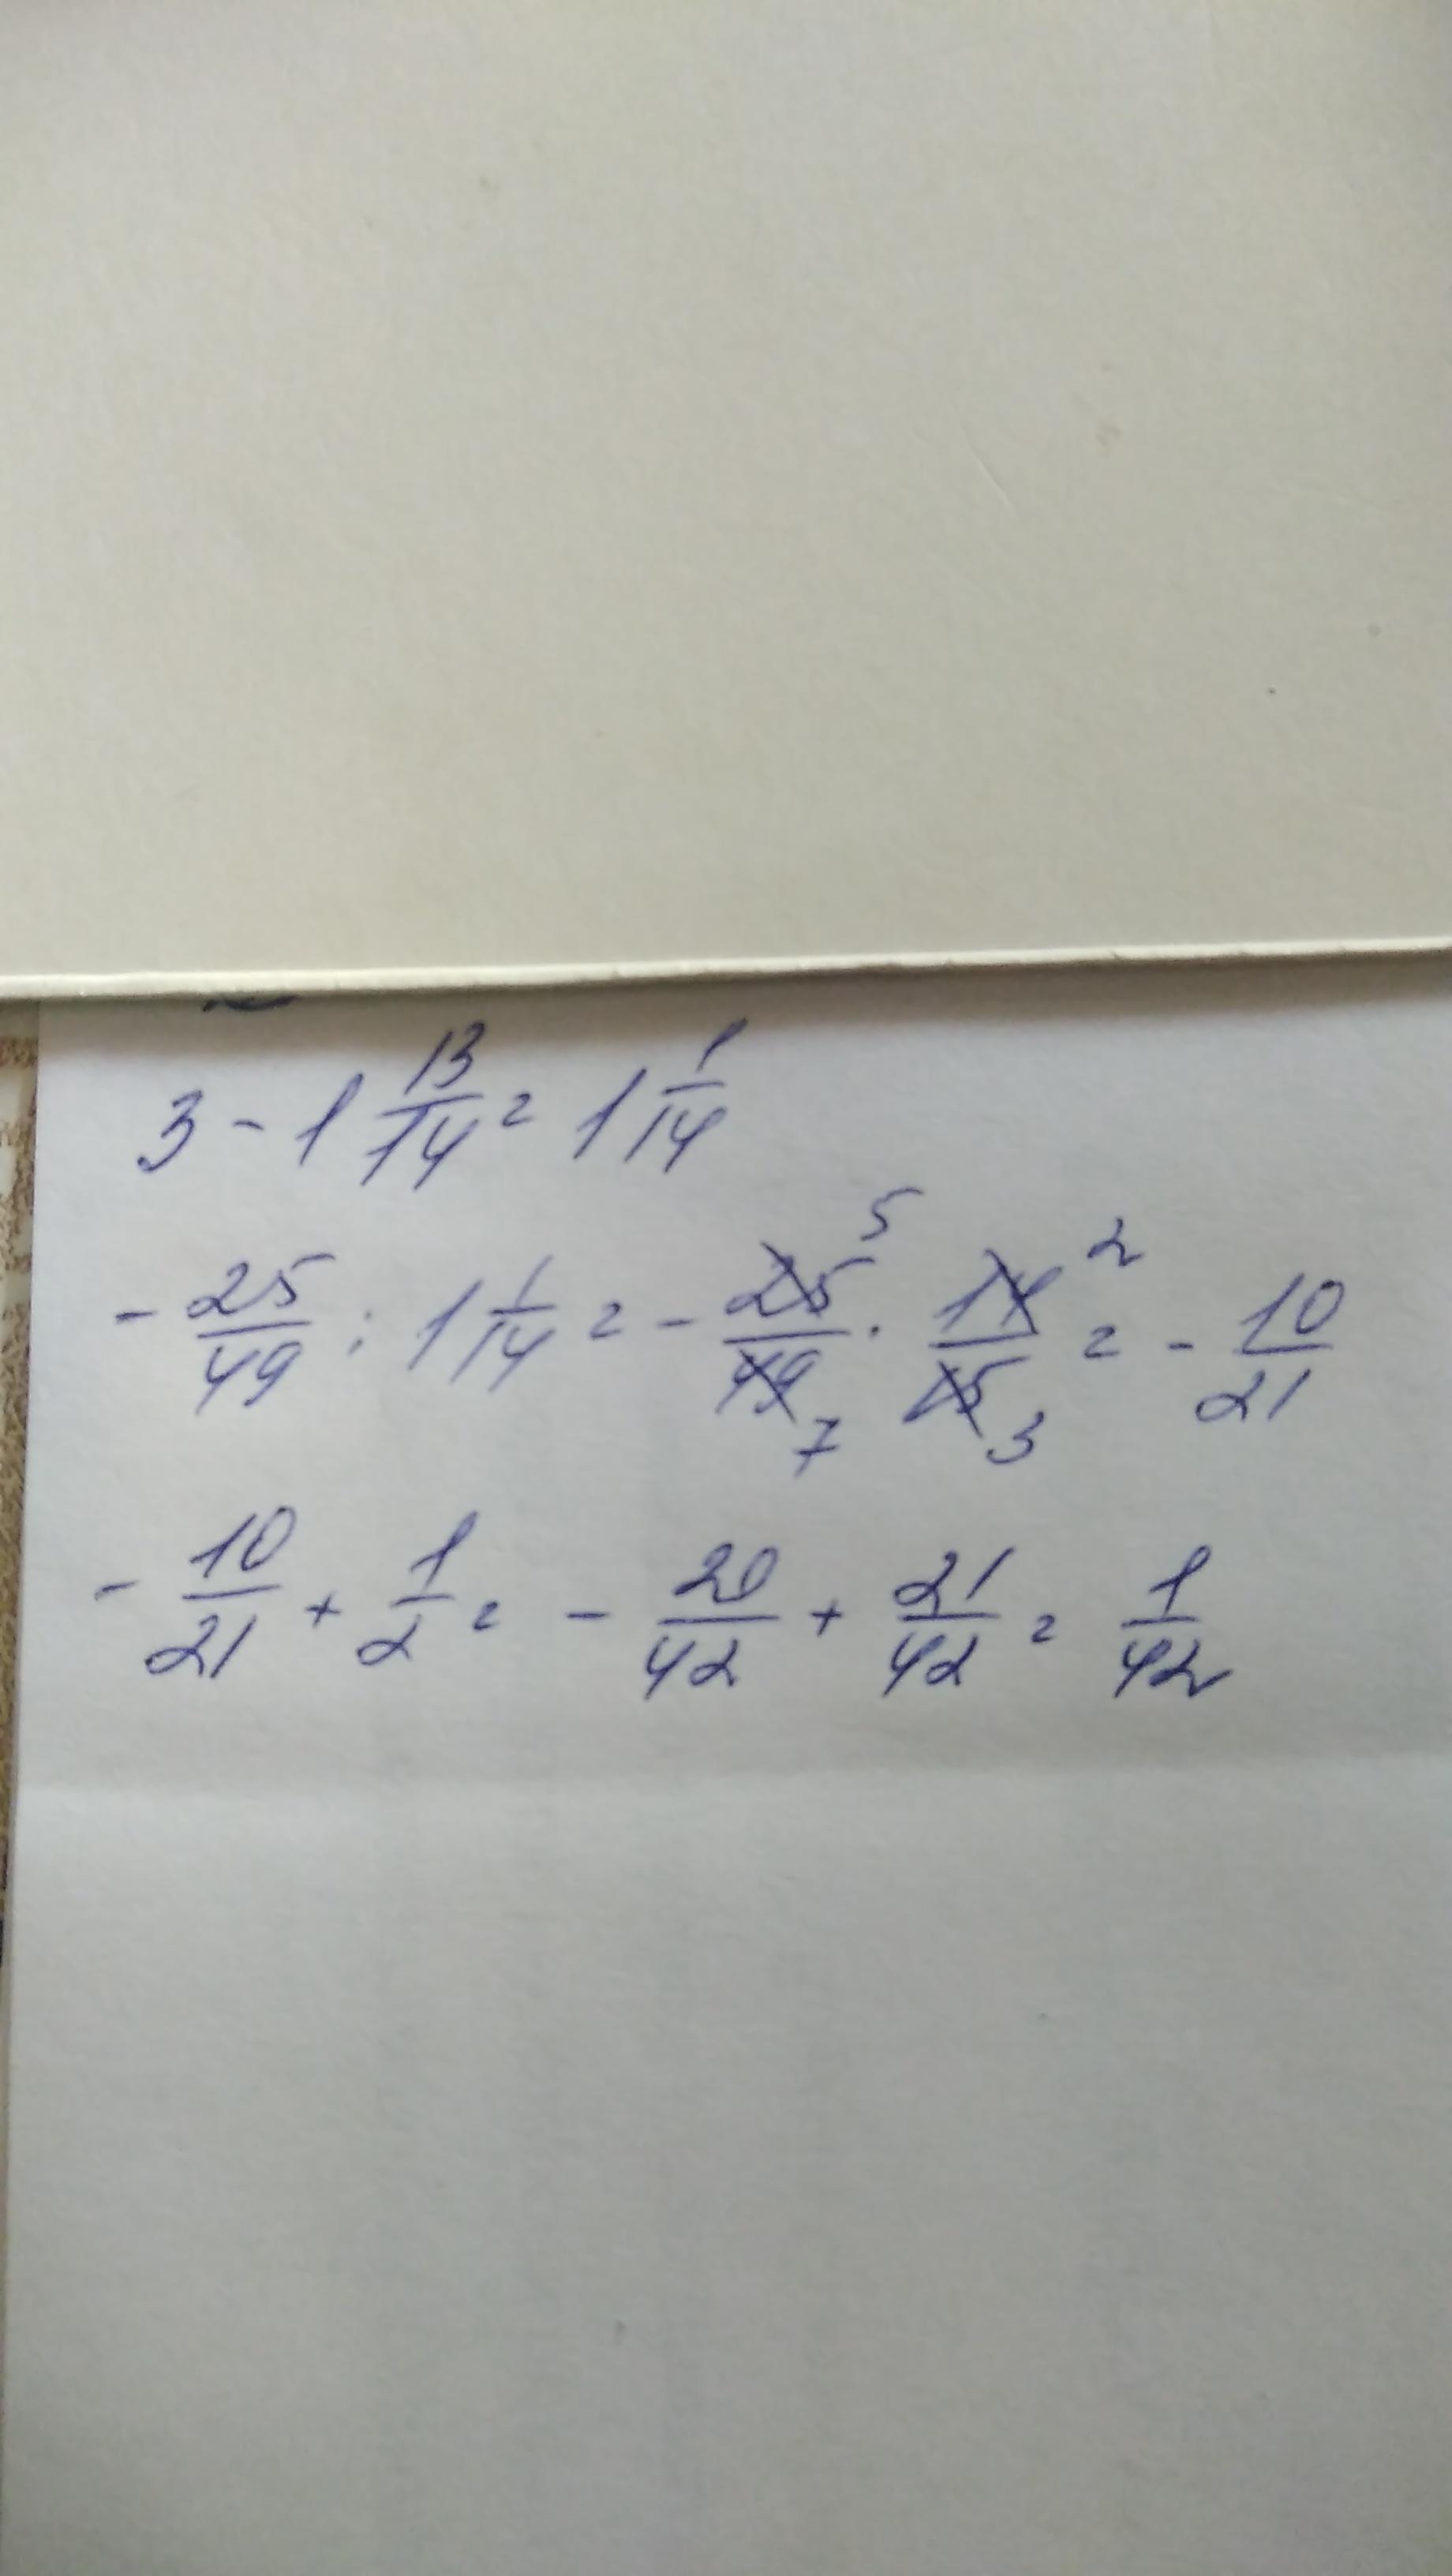 3 - 1 13/14 = 1 1/14
- 25/49 : 1 1/14 = - 25/49 · 14/15 = - 10/21 5 2 7 3
- 10/21 + 1/2 = - 20/42 + 21/42 = 1/42